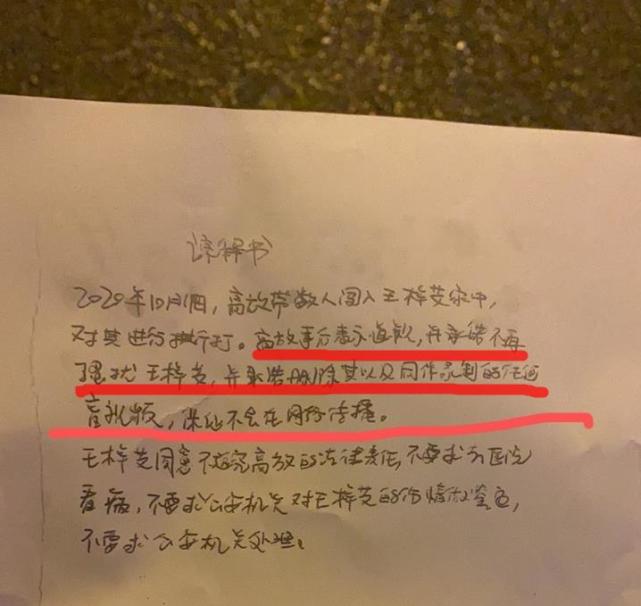 谅解书
2020年10月1日,高放带数人闯入王梓芠家中,
对其进行殴打。高放事后表示道歉,并承诺不再
骚扰王梓芠,并承诺删除其以及同伙录制的任何
音视频,保证不会在网络传播。
王梓芠同意不追究高放的法律责任,不要求去医院
看病,不要求公安机关对王梓芠的伤情做鉴定,
不要求公安机关处理。